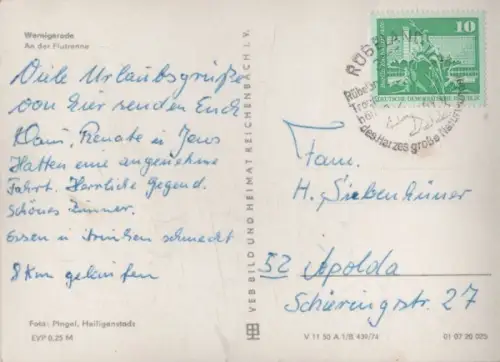 Wernigerode
An der Flutrenne
Viele Urlaubsgrüße
von hier senden Euch
Klaus, Renate u. Jens
Hatten eine angenehme
Fahrt. Herrliche Gegend.
Schönes Zimmer.
Essen u. trinken schmeckt
8 Km gelaufen
Foto: Pingel, Heiligenstadt
EVP 0,25 M
VEB BILD UND HEIMAT REICHENBACH i. V.
10
DEUTSCHE DEMOKRATISCHE REPUBLIK
RÜBELAND
des Harzes große Naturwunder
Fam.
H. Siebenhüner
52 Apolda
Schieringstr. 27
V 11 50 A 1/B 439/74
01 07 20 025